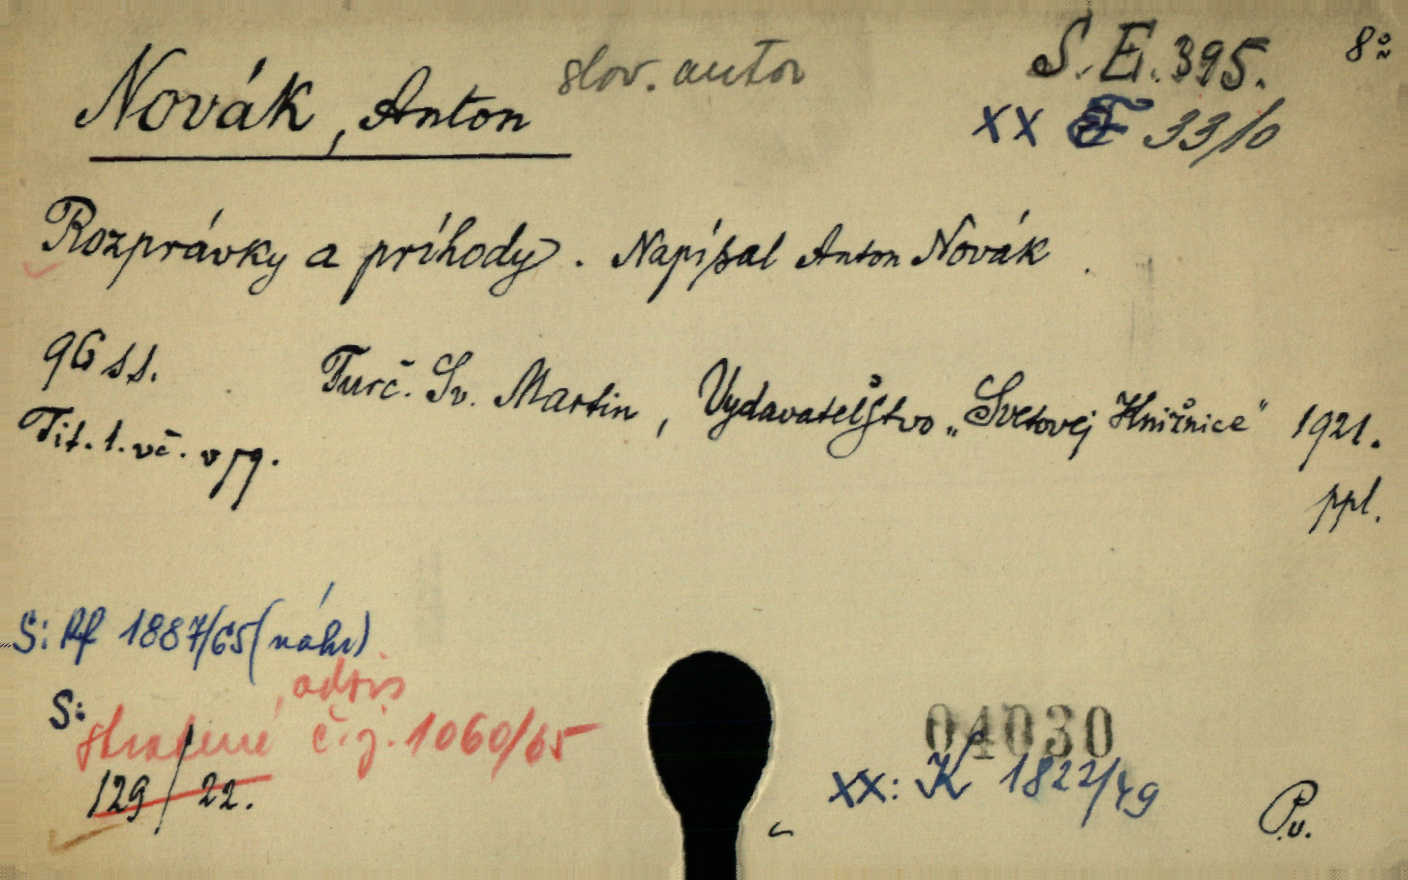 Novák, Anton slov. autor S.E.395. 8°
xx F 33/0
Rozprávky a príhody. Napísal Anton Novák.
96 ss. Turč. Sv. Martin, Vydavateľstvo „Svetovej Knižnice" 1921.
Tit. 1. vč. v pg.
ppl.
S: Rf 1887/65 (náhr)
, odpis
S: stratené č.j. 1060/65
129/22.
04030
xx: K 1822/49
P.v.